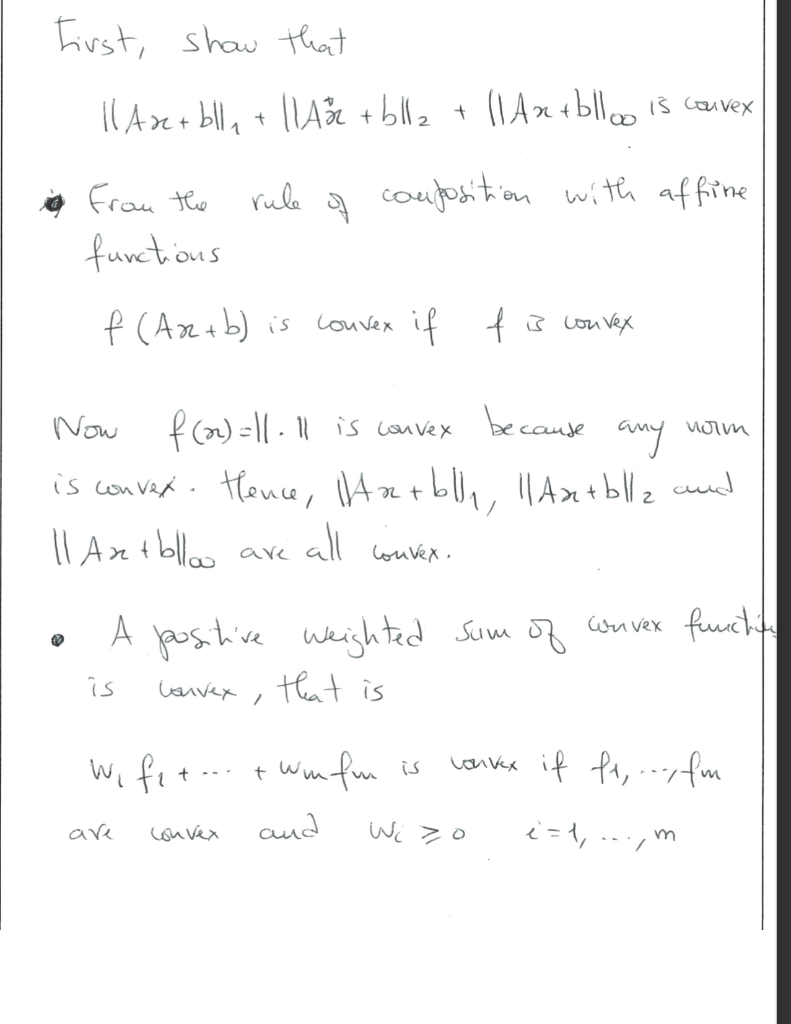 First, show that
||Ax + b||₁ + ||Ax + b||₂ + ||Ax + b||∞ is convex
• From the rule of composition with affine
functions
f (Ax + b) is convex if f is convex
Now f(x) = ||·|| is convex because any norm
is convex. Hence, ||Ax + b||₁, ||Ax + b||₂ and
||Ax + b||∞ are all convex.
• A positive weighted sum of convex functi
is convex, that is
w₁ f₁ + ... + wm fm is convex if f₁, ..., fm
are convex and wᵢ ≥ 0 i = 1, ..., m